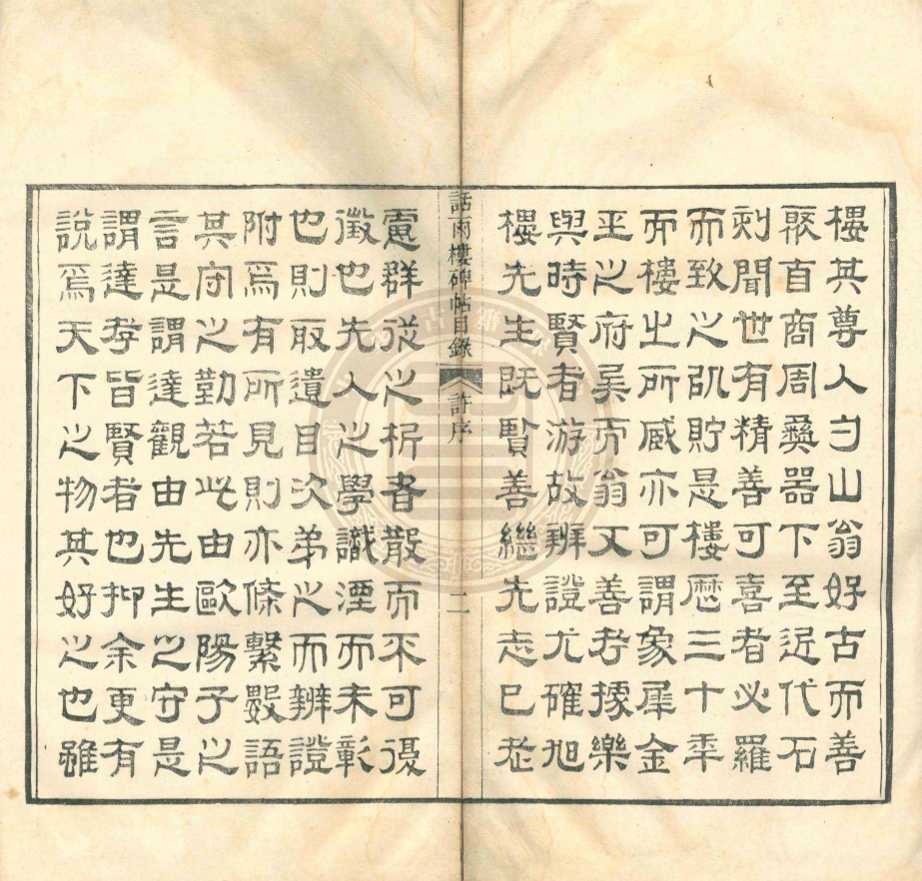 樓其尊人勺山翁好古而善
聚自商周彝器下至近代石
刻聞世有精善可喜者必羅
而致之皆貯是樓歷三十年
而樓之所藏亦可謂象犀金
玉之府矣而翁又善考據樂
與時賢者游故辨證尤確旭
樓先生既賢善繼先志已老
話雨樓碑帖目錄
許序
二
慮群從之析者散而不可復
徵也先人之學識湮而未彰
也則取遺目次弟之而辨證
附焉有所見則亦條繫數語
其守之勤若此由歐陽子之
言是謂達觀由先生之守是
謂達孝皆賢者也抑余更有
說焉天下之物其好之也雖